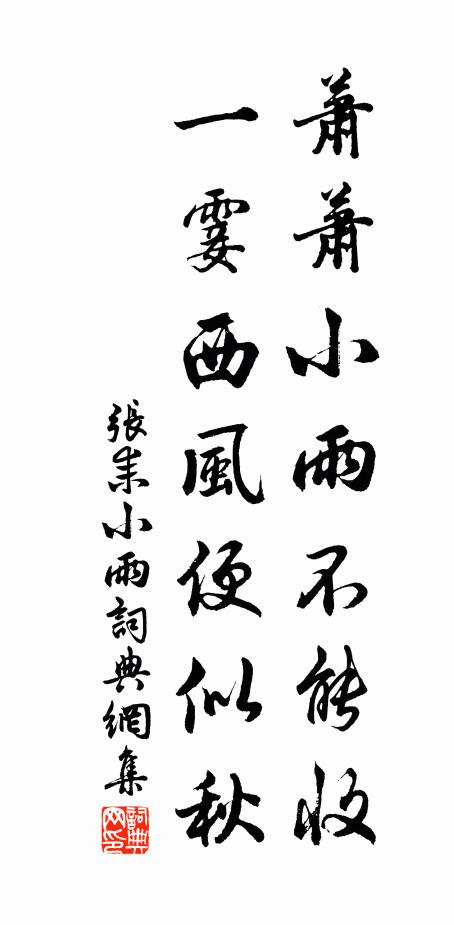 蕭蕭小雨不能收
一霎西風便似秋
張耒小雨詞典網集
詞典网印